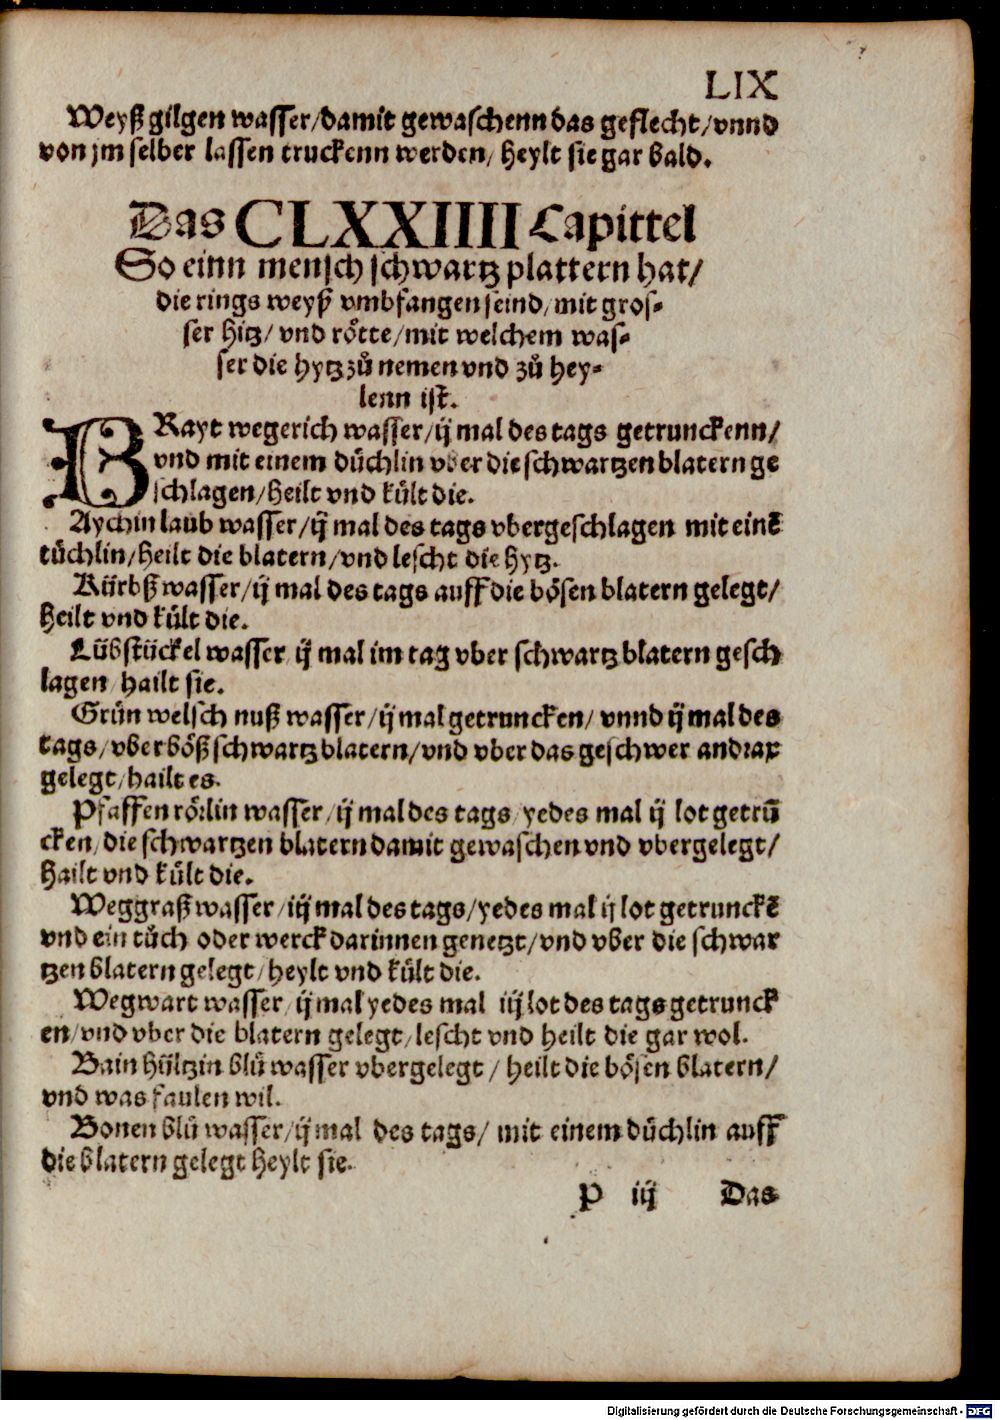 LIX
Weyß gilgen wasser/damit gewaschenn das geflecht/vnnd
von jm selber lassen truckenn werden/ heylt sie gar bald.
Das CLXXIIII Capittel
So einn mensch schwartz plattern hat/
die rings weyß vmbfangen seind/mit gros-
ser hitz/ vnd rötte/mit welchem was-
ser die hytz zů nemen vnd zů hey-
lenn ist.
BRayt wegerich wasser/ij mal des tags getrunckenn/
vnd mit einem důchlin vber die schwartzen blatern ge
schlagen/heilt vnd kůlt die.
Aychin laub wasser/ij mal des tags vbergeschlagen mit einē
tůchlin/heilt die blatern/vnd lescht die hytz.
Kürbß wasser/ij mal des tags auff die bösen blatern gelegt/
heilt vnd kůlt die.
Lübstückel wasser ij mal im tag vber schwartz blatern gesch
lagen/hailt sie.
Grün welsch nuß wasser/ij mal getruncken/ vnnd ij mal des
tags/vber böß schwartz blatern/vnd vber das geschwer andrax
gelegt/hailt es.
Pfaffen rörlin wasser/ij mal des tags/yedes mal ij lot getrū
cken/die schwartzen blatern damit gewaschen vnd vbergelegt/
hailt vnd kůlt die.
Weggraß wasser/iij mal des tags/yedes mal ij lot getrunckē
vnd ein tůch oder werck darinnen genetzt/vnd vber die schwar
tzen blatern gelegt/heylt vnd kůlt die.
Wegwart wasser/ij mal yedes mal iij lot des tags getrunck
en/vnd vber die blatern gelegt/lescht vnd heilt die gar wol.
Bain hültzin blů wasser vbergelegt / heilt die bösen blatern/
vnd was faulen wil.
Bonen blů wasser/ij mal des tags/ mit einem důchlin auff
die blatern gelegt heylt sie.
P iij Das
Digitalisierung gefördert durch die Deutsche Forschungsgemeinschaft - DFG